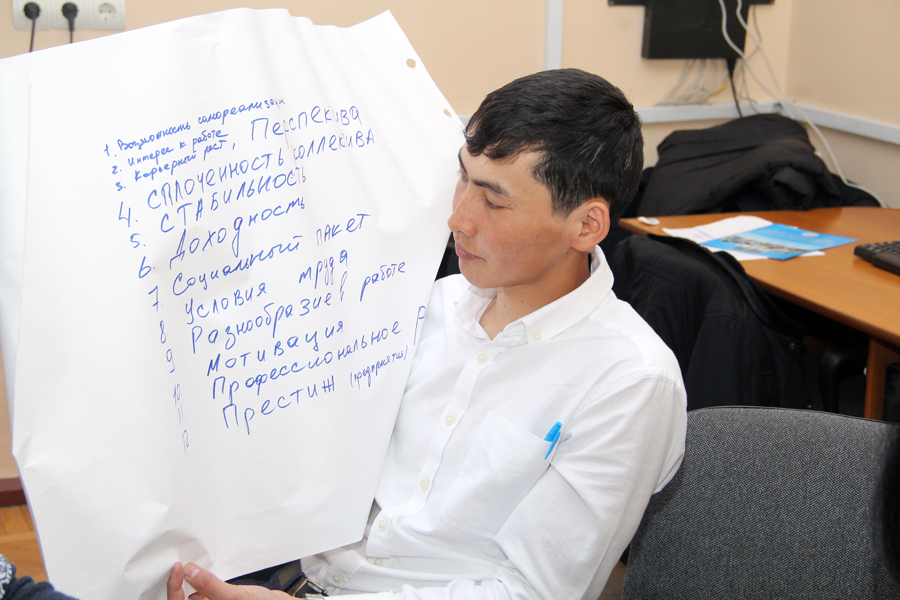 1. Возможность самореализации
2. Интерес к работе
3. Карьерный рост, Перспекива
4. СПЛОЧЕННОСТЬ КОЛЛЕКИВА
5. СТАБИЛЬНОСТЬ
6. Доходность
7. Социальный ПАКЕТ
8 Условия труда
9 Разнообразие в работе
10. Мотивация
11. Профессиональное р
12. Престиж (предприятия)